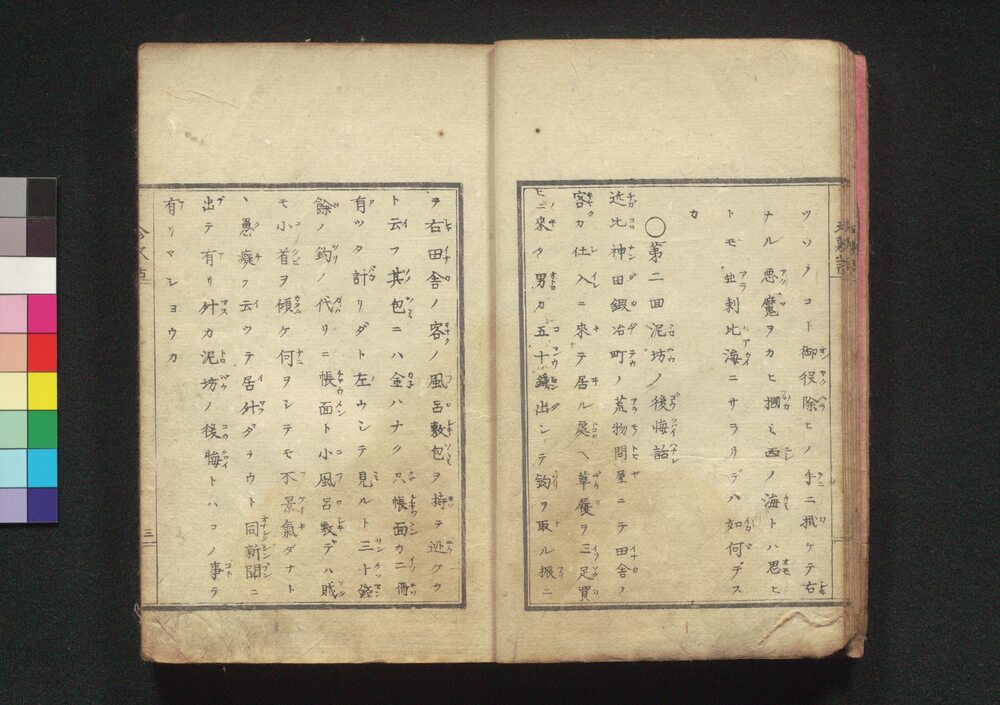 ツソクコト御役除ヒノ手ニ掛ケテ右
ナル悪魔ヲカヒ掴ミ西ノ海トハ思ヒ
トモ亜剌比海ニサラリデハ如何デス
カ
〇第二回泥坊ノ後悔話
近比神田鍛冶町ノ荒物問屋ニテ田舎ノ
客カ仕入ニ來テ居ル處ヘ草履ヲ三足買
ヒニ來タ男カ五十錢出シテ釣ヲ取ル振ニ
ヲ右田舎ノ客ノ風呂敷包ヲ持テ逃ケタ
ト云フ其包ニハ金ハナク只帳面カ二冊
有ツタ計リダト左ウシテ見ルト三十錢
餘ノ釣ノ代リニ帳面ト小風呂敷デハ賊
モ小首ヲ傾ケ何ヲシテモ不景氣ダナト
、愚癡ヲ云ツテ居舛ダラウト同新聞ニ
出テ有リ舛カ泥坊ノ後悔トハコノ事テ
有リマショウカ
三